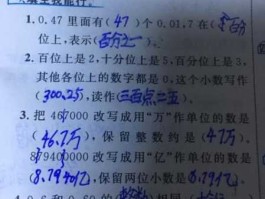 填空我能行。
1. 0.47 里面有(47)个 0.01,7 在(百分
位上,表示(百分之一)。
2. 百位上是2,十分位上是5,百分位上是3,
其他各位上的数字都是0,这个小数写作
(300.25),读作(三百点二五)。
3. 把 467000 改写成用“万”作单位的数是
(46.7万),保留整数约是(47万)。
879400000 改写成用“亿”作单位的数是
(8.794亿),保留两位小数是(8.79亿)。